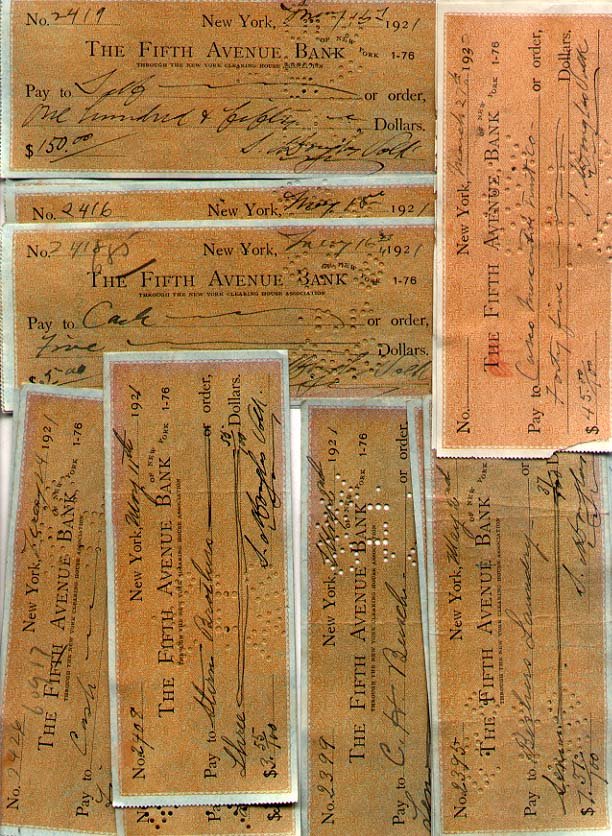 No. 2419 New York, May 15 1921
THE FIFTH AVENUE BANK OF NEW YORK 1-76
THROUGH THE NEW YORK CLEARING HOUSE ASSOCIATION
Pay to Self or order,
One hundred & fifty Dollars.
$150.00 S. Douglas Volk
No. 2416 New York, 1921
No. 2418 New York, May 16 1921
THE FIFTH AVENUE BANK OF NEW YORK 1-76
THROUGH THE NEW YORK CLEARING HOUSE ASSOCIATION
Pay to Cash or order,
Five Dollars.
$5.00 Douglas Volk
No. New York, March 27th 193
THE FIFTH AVENUE BANK OF NEW YORK 1-76
Pay to or order,
Forty five Dollars.
$45.00/100 S. Douglas Volk
No. 2426 New York, 14 1921
60917
THE FIFTH AVENUE BANK OF NEW YORK 1-76
THROUGH THE NEW YORK CLEARING HOUSE ASSOCIATION
Pay to Cash
No. New York, May 11th 1921
THE FIFTH AVENUE BANK OF NEW YORK 1-76
THROUGH THE NEW YORK CLEARING HOUSE ASSOCIATION
Pay to Stern Brothers or order,
Three Dollars.
$3.55/100 S. Douglas Volk
No. 2399 New York, 1921
THE FIFTH AVENUE BANK OF NEW YORK 1-76
THROUGH THE NEW YORK CLEARING HOUSE ASSOCIATION
Pay to C. H. Busch or order,
No. 2395 New York, May
THE FIFTH AVENUE BANK OF NEW YORK
THROUGH THE NEW YORK CLEARING HOUSE ASSOCIATION
Pay to Laundry
Seven 37
$7.37/100 S. Douglas